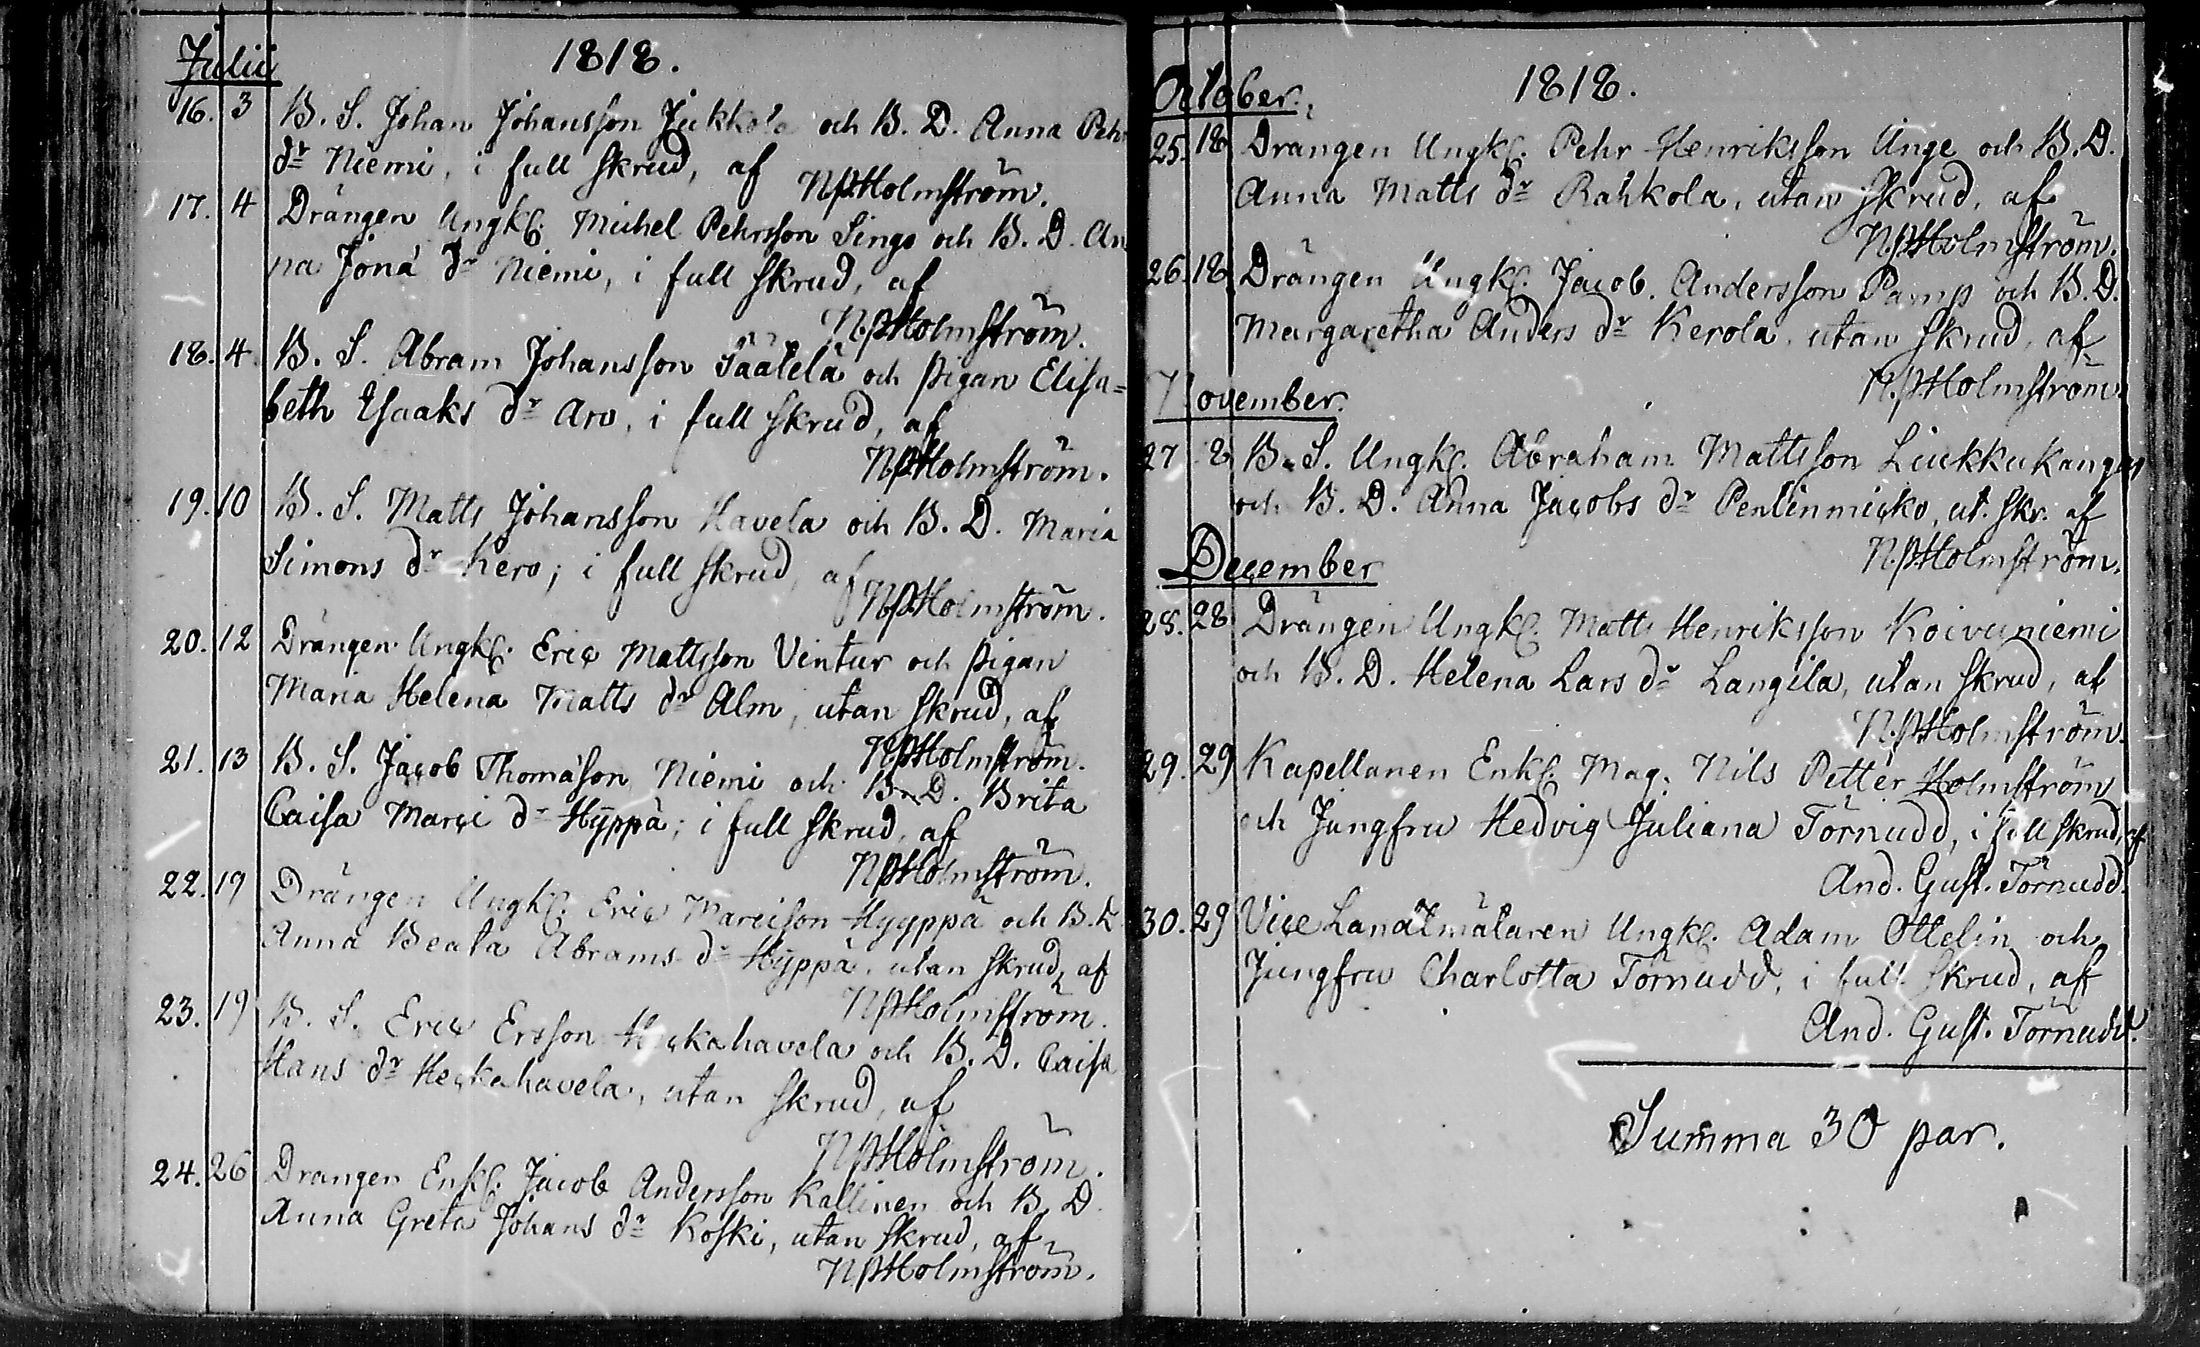 Julii 1818.
16. 3 B. S. Johan Johansson Jukkola och B. D. Anna Pehr
dr Niemi, i full skrud, af NPHolmström.
17. 4 Drängen Ungk. Michel Pehrsson Singo och B. D. An
na Jona dr Niemi, i full skrud, af
NPHolmström.
18. 4. B. S. Abram Johansson Säätelä och pigan Elisa=
beth Esaaks dr Aro, i full skrud, af
NPHolmström.
19. 10 B. S. Matts Johansson Havela och B. D. Maria
Simons dr Kero; i full skrud, af NPHolmström.
20. 12 Drängen Ungk. Eric Mattsson Ventur och pigan
Maria Helena Matts dr Alm, utan skrud, af
NPHolmström.
21. 13 B. S. Jacob Thomasson Niemi och B. D. Brita
Caisa Marci dr Hyppä; i full skrud, af
NPHolmström.
22. 19 Drängen Ungk. Eric Marcisson Hyyppä och B. D.
Anna Beata Abrams dr Hyppä, utan skrud, af
NPHolmström.
23. 19 B. S. Eric Ersson Heckahavela och B. D. Caisa
Hans dr Heckahavela, utan skrud, af
NPHolmström.
24. 26 Drängen Enkl. Jacob Andersson Kallinen och B. D.
Anna Greta Johans dr Koski, utan skrud, af
NPHolmström.
October. 1818.
25. 18 Drängen Ungk. Pehr Henriksson Unge och B. D.
Anna Matts dr Rahkola, utan skrud, af
NPHolmström.
26. 18 Drängen Ungk. Jacob Andersson Pamp och B. D.
Margaretha Anders dr Kerola, utan skrud, af
N.PHolmström.
November.
27 8 B. S. Ungk. Abraham Mattsson Liukkukangas
och B. D. Anna Jacobs dr Pentinmicko, ut. skr. af
N.PHolmström.
December
28. 28 Drängen Ungk. Matts Henriksson Koivuniemi
och B. D. Helena Lars dr Langila, utan skrud, af
N.PHolmström.
29. 29 Kapellanen Enkl. Mag. Nils Petter Holmström
och Jungfru Hedvig Juliana Törnudd, i full skrud, af
And. Gust. Törnudd.
30. 29 Vice Landtmätaren Ungk. Adam Ottelin och
Jungfru Charlotta Törnudd, i full skrud, af
And. Gust. Törnudd.
Summa 30 par.